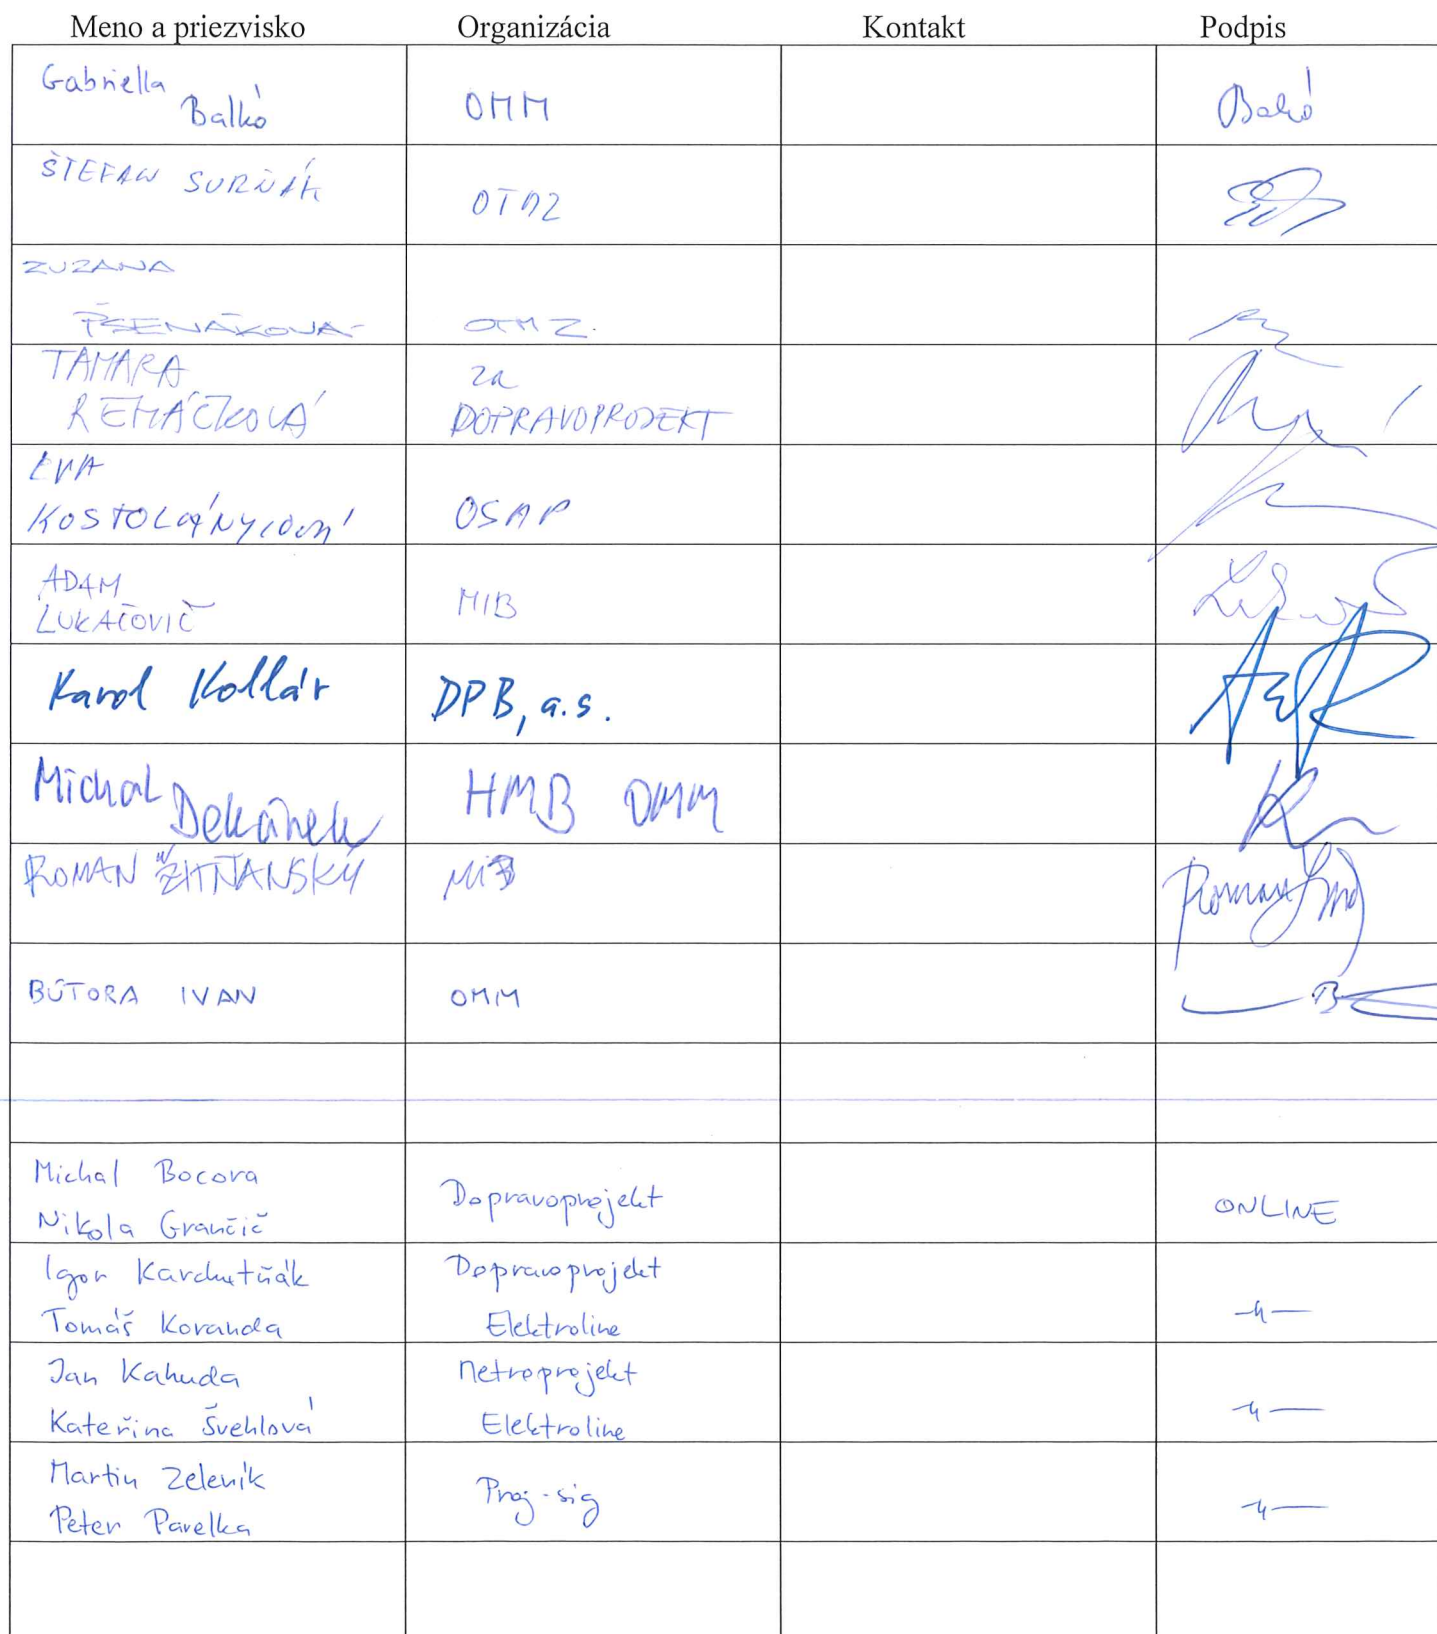 Meno a priezvisko Organizácia Kontakt Podpis
Gabriella
Balkó OMM Balkó
ŠTEFAN SURŇÁK OTMZ
ZUZANA
PŠENÁKOVÁ OTMZ.
TAMARA za
REMÁČKOVÁ DOPRAVOPROJEKT
EVA
KOSTOLÁNYIOVÁ OSAP
ADAM
LUKAČOVIČ MIB
Karol Kollár DPB, a.s.
Michal
Dekánek HMB OMM
ROMAN ŽITŇANSKÝ MIB Roman
BÚTORA IVAN OMM
Michal Bocora
Nikola Grančič Dopravoprojekt ONLINE
Igor Dopravoprojekt
Tomáš Koranda Elektroline
Jan Kahuda Metroprojekt
Kateřina Švehlová Elektroline
Martin Zeleník
Peter Pavelka Proj-sig